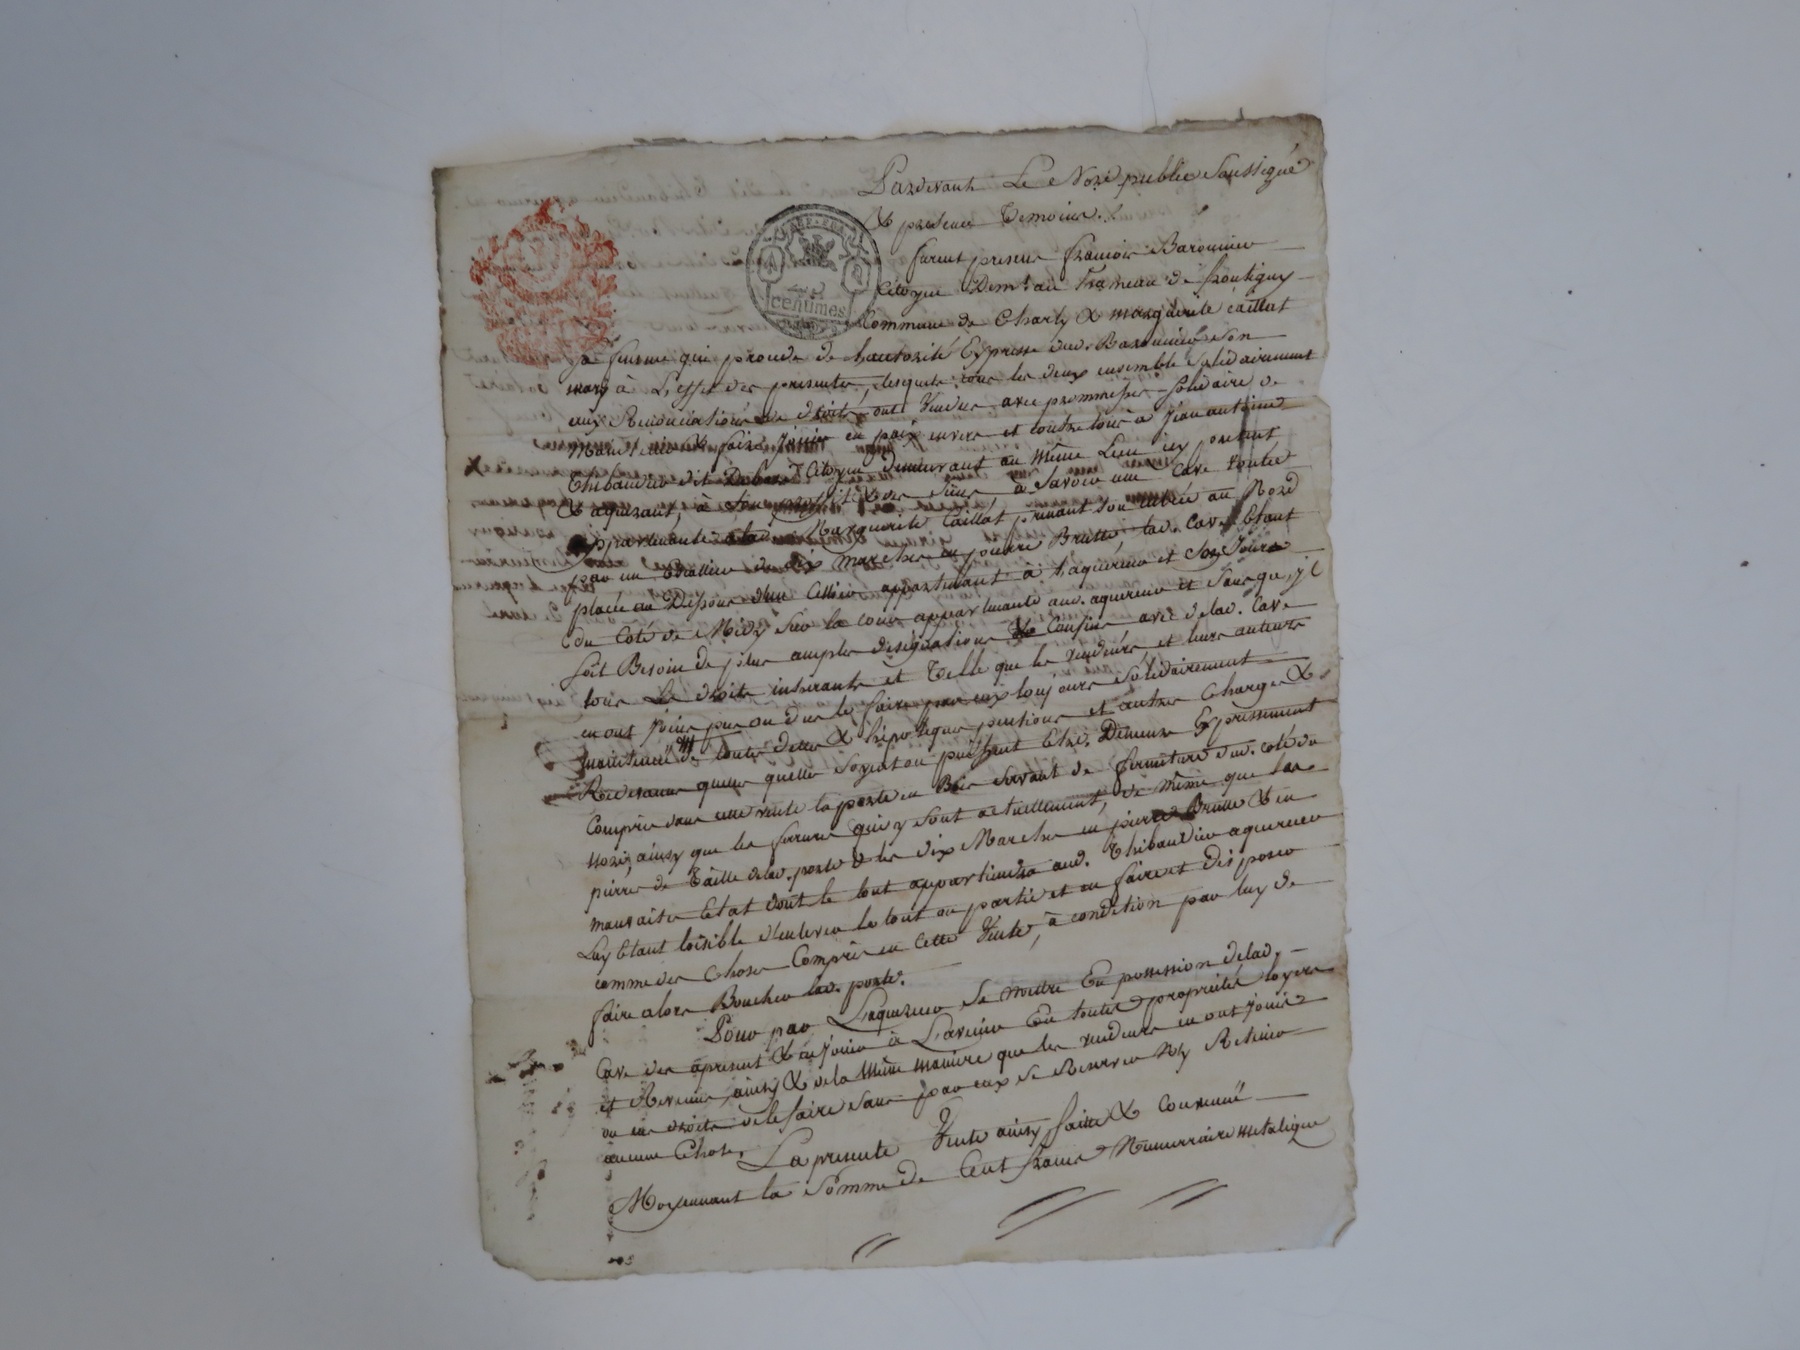 Pardevant Le Nore public Soussigné
& presence Temoins.
furent presens francois Baronnier
Citoyen Demt. au hameau de frontigny
Commune de Charly & marguerite Caillat
REP. FRA.
centimes
sa femme qui procede de l'authorité Expresse dud. Baronnier son
mary à L'effet des presentes, lesquels tous les deux ensemble solidairement
aux Renonciations de droits, ont Vendus avec prommesse solidaire de
Maintenir & faire Jouir en paix envers et contre tous à Jean antoine
Thibaudier dit Citoyen demeurant au même Lieu icy present
& aquerant, à son profit & des siens, à Savoir une Cave voutée
appartenante à lad. Marguerite Caillat prenant son entrée au Nord
par un Escallier de dix marches en pierre Brutte, lad. Cave Etant
placée au Dessous d'un Cellier appartenant à l'aquereur et Son Jour
du Coté de Midy Sur la cour appartenante aud. aquereur et Sans qu'il
soit Besoin de plus amples designations & Confins avec de lad. Cave
tous Les droits inherants et Telle que les vendeurs, et leurs auteurs
en ont Jouis pu ou du le faire par eux toujours Solidairement
maintenüe de toutes dettes & hipoteques pentions et autres Charges &
Redevances quelles quelles soyent ou puissent Etre. Demeure Expressement
Compris dans cette vente la porte en Bois servant de fermeture dud. coté du
nord, ainsy que les ferrures qui y sont actuellement, de même que les
pierres de Taille de lad. porte & les dix Marches en pierre Brutte & en
mauvaise Etat dont le tout appartiendra aud. Thibaudier aquereur
Luy Etant loisible d'enlever le tout ou partie et en faire et disposer
comme des Choses Compris en Cette Vente, à condition par luy de
faire alors Boucher lad. porte.
Pour par L'aquereur se mettre En possession de lad.
Cave des apresent & en Jouir à L'avenir En toutes proprietés loyers
et Revenus, ainsy & de la même maniere que les vendeurs en ont Jouis
ou eu droits de le faire sans par eux se Reserver Ny Retenir
aucune Chose.
La presente Vente ainsy faitte & convenüe
Moyennant la Somme de Cent francs Numerraire metalique